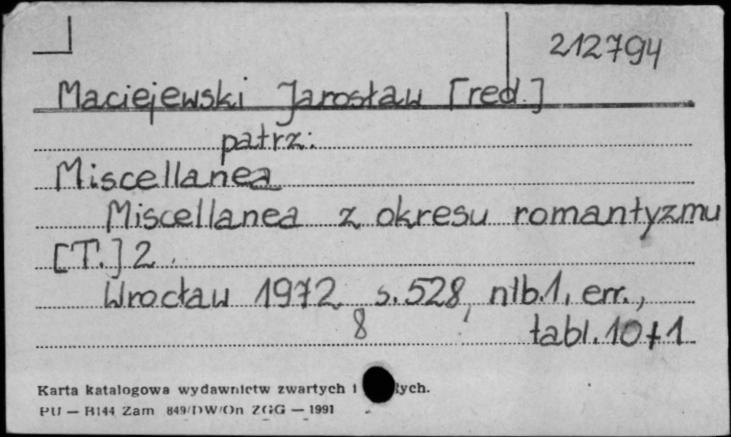 212794
Maciejewski Jarosław [red.]
patrz:
Miscellanea
Miscellanea z okresu romantyzmu
[T.] 2.
Wrocław 1972 s. 528, nlb.1, err.,
8 tabl. 10+1
Karta katalogowa wydawnictw zwartych i
PU — B144 Zam 849/DW/On ZGG — 1991